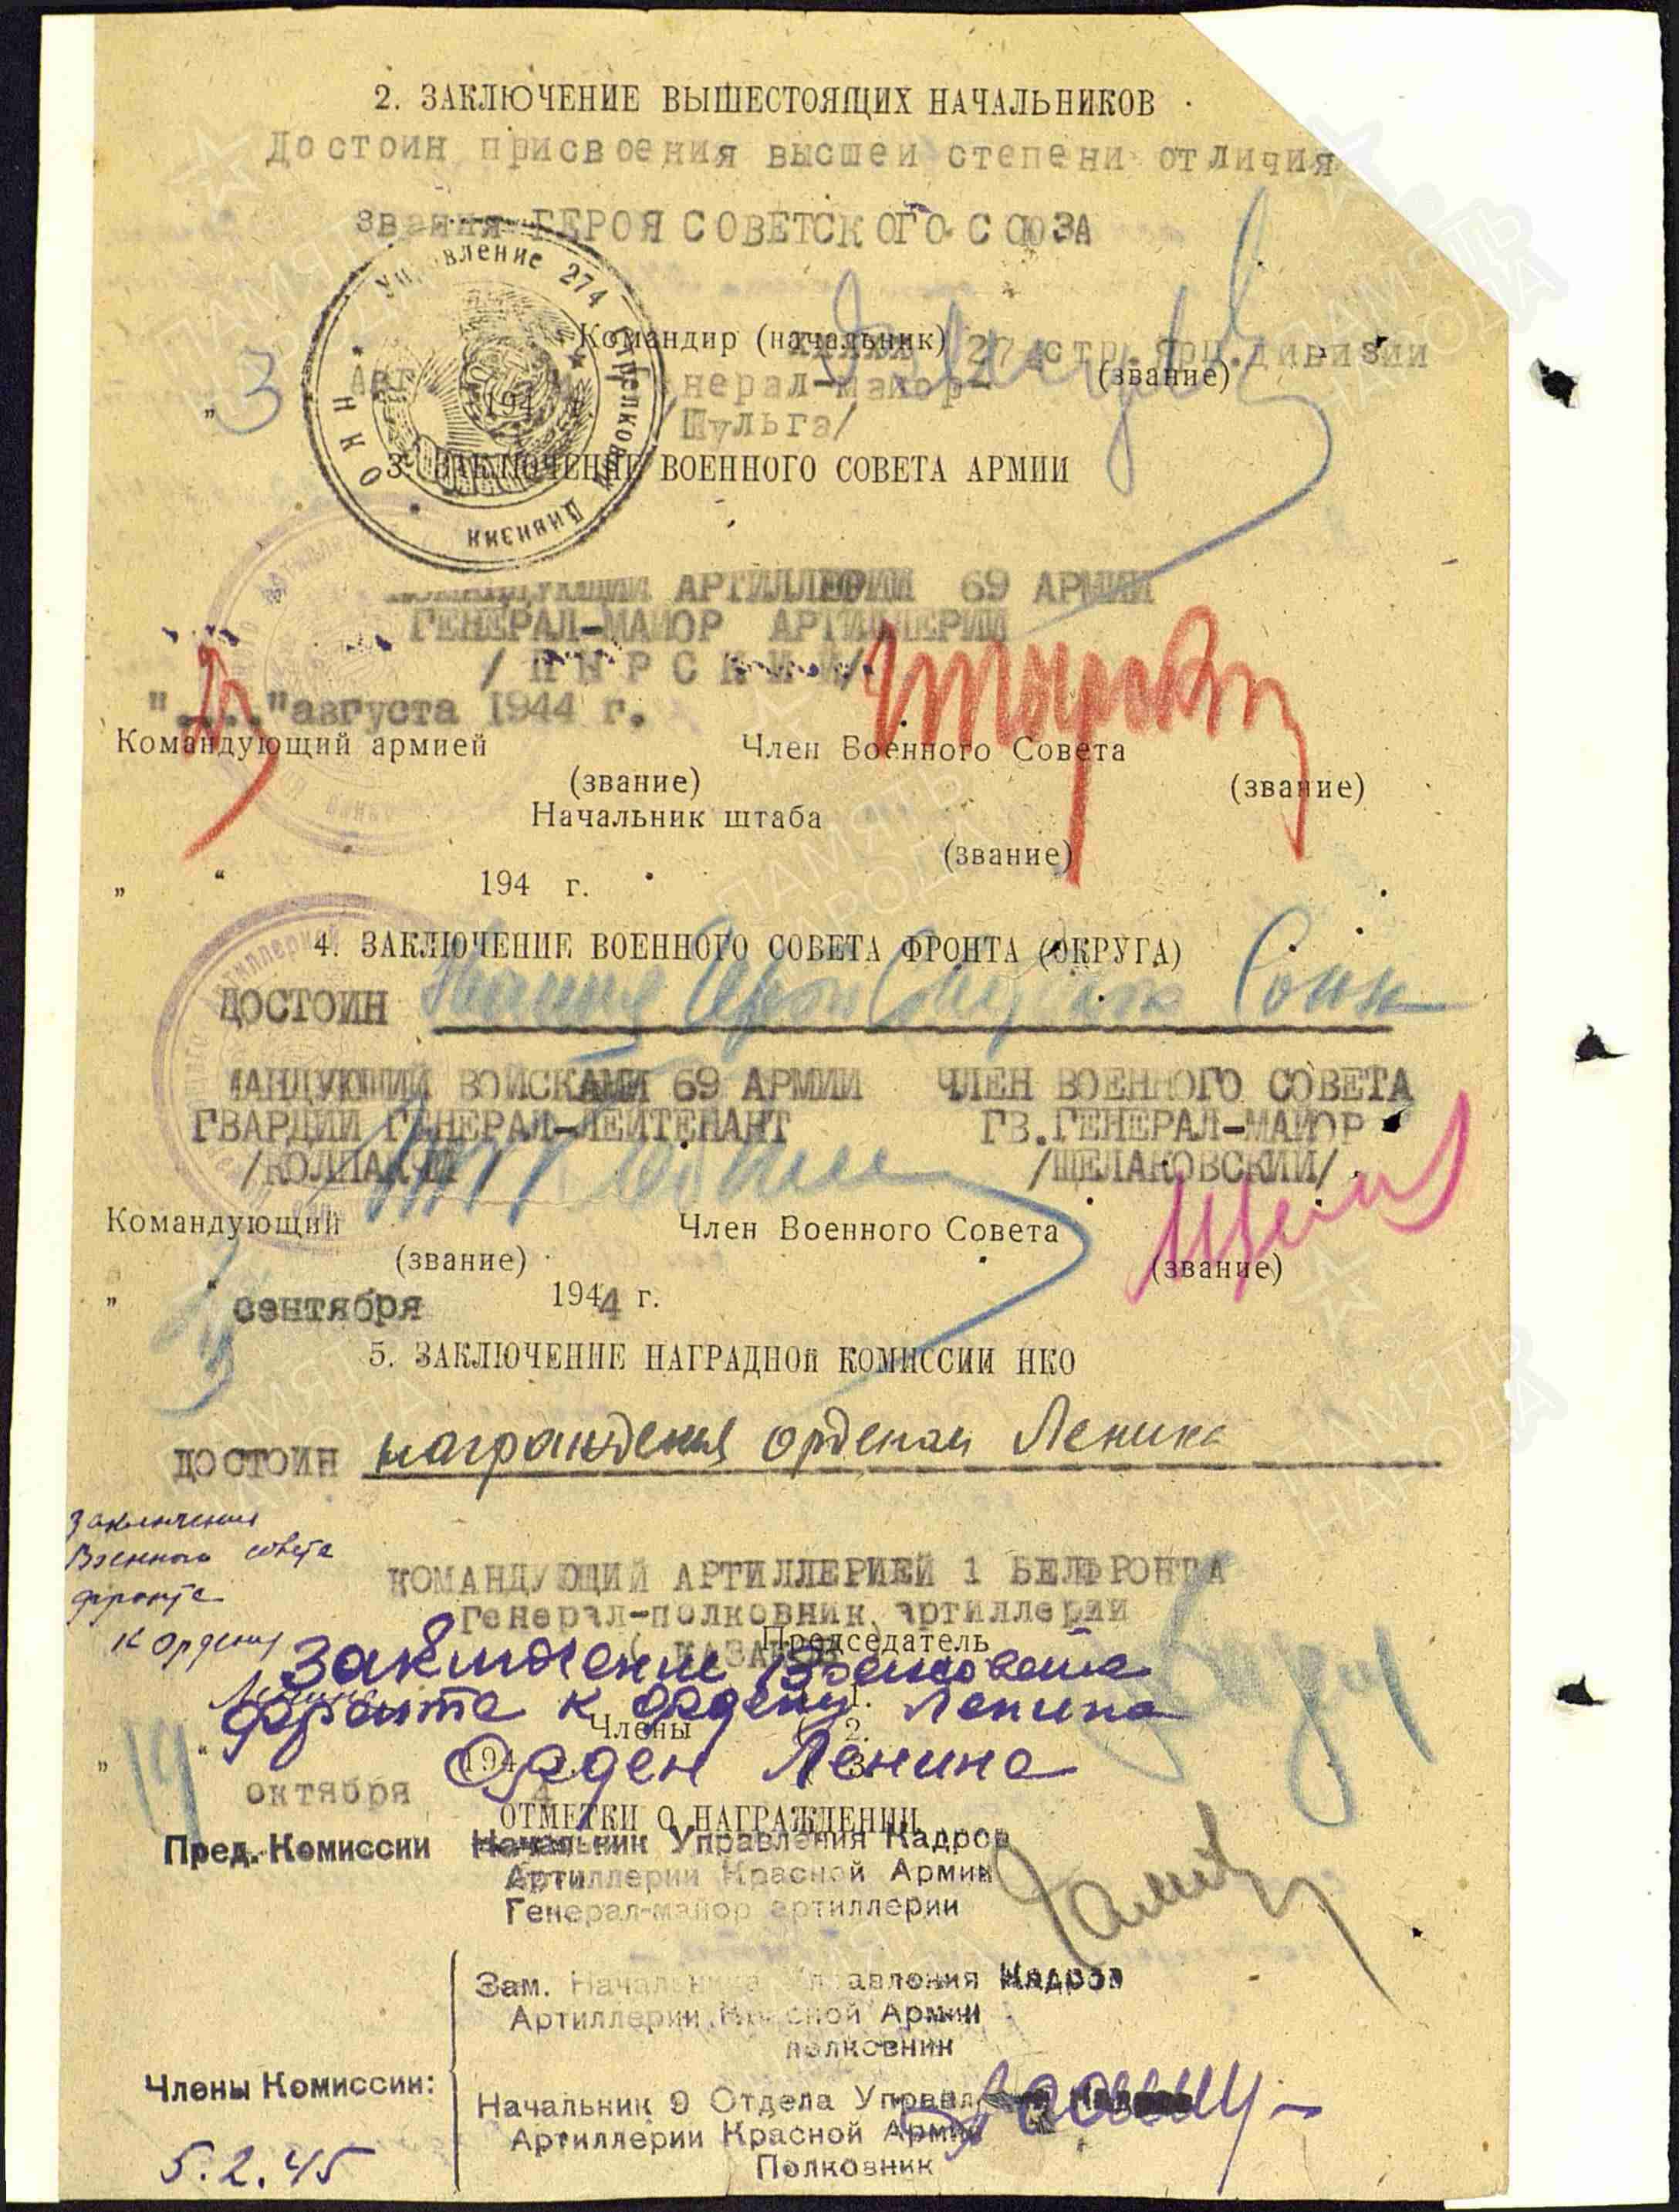 2. ЗАКЛЮЧЕНИЕ ВЫШЕСТОЯЩИХ НАЧАЛЬНИКОВ
Достоин присвоения высшей степени отличия
звания ГЕРОЯ СОВЕТСКОГО СОЮЗА
Управление 274 Стрелковой Дивизии
Н К О
Командир (начальник) 274 стр. ярц. дивизии
(звание)
"3 Авг 194
нерал-майор-
/Шульга/
3. ЗАКЛЮЧЕНИЕ ВОЕННОГО СОВЕТА АРМИИ
КОМАНДУЮЩИЙ АРТИЛЛЕРИИ 69 АРМИИ
ГЕНЕРАЛ-МАЙОР АРТИЛЛЕРИИ
/ПЫРСКИЙ/
"...."августа 1944 г.
Командующий армией Член Военного Совета
(звание) (звание)
Начальник штаба
(звание)
„ “ 194 г.
4. ЗАКЛЮЧЕНИЕ ВОЕННОГО СОВЕТА ФРОНТА (ОКРУГА)
ДОСТОИН звания Героя Советского Союза
МАНДУЮЩИЙ ВОЙСКАМИ 69 АРМИИ ЧЛЕН ВОЕННОГО СОВЕТА
ГВАРДИИ ГЕНЕРАЛ-ЛЕЙТЕНАНТ ГВ.ГЕНЕРАЛ-МАЙОР
/КОЛПАКЧИ/ /ЩЕЛАКОВСКИЙ/
Командующий Член Военного Совета
(звание) (звание)
„ “ сентября 1944 г.
5. ЗАКЛЮЧЕНИЕ НАГРАДНОЙ КОМИССИИ НКО
ДОСТОИН награждения орденом Ленина
Заключения
Военного совета
фронта
к ордену
Ленина
КОМАНДУЮЩИЙ АРТИЛЛЕРИЕЙ 1 БЕЛФРОНТА
генерал-полковник артиллерии
( КАЗАКОВ )
Председатель
Заключение Военсовета
1.
фронта к ордену Ленина
Члены 2.
Орден Ленина
3.
„14“ октября 1944
ОТМЕТКИ О НАГРАЖДЕНИИ
Пред. Комиссии Начальник Управления Кадров
Артиллерии Красной Армии
Генерал-майор артиллерии
Зам. Начальника Управления Кадров
Артиллерии Красной Армии
полковник
Члены Комиссии:
Начальник 9 Отдела Управления Кадров
Артиллерии Красной Армии
Полковник
5.2.45
ПАМЯТЬ
НАРОДА